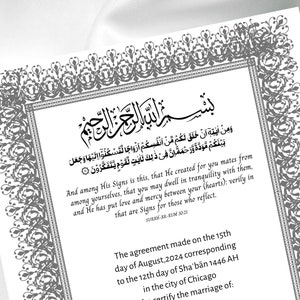 بسم الله الرحمن الرحيم
وَمِنْ آيَاتِهِ أَنْ خَلَقَ لَكُم مِّنْ أَنفُسِكُمْ أَزْوَاجًا لِّتَسْكُنُوا إِلَيْهَا وَجَعَلَ
بَيْنَكُم مَّوَدَّةً وَرَحْمَةً إِنَّ فِي ذَٰلِكَ لَآيَاتٍ لِّقَوْمٍ يَتَفَكَّرُونَ
And among His Signs is this, that He created for you mates from
among yourselves, that you may dwell in tranquility with them,
and He has put love and mercy between your (hearts): verily in
that are Signs for those who reflect.
SURAH AR-RUM 30:21
The agreement made on the 15th
day of August,2024 corresponding
to the 12th day of Sha'bān 1446 AH
in the city of Chicago
certify the marriage of: